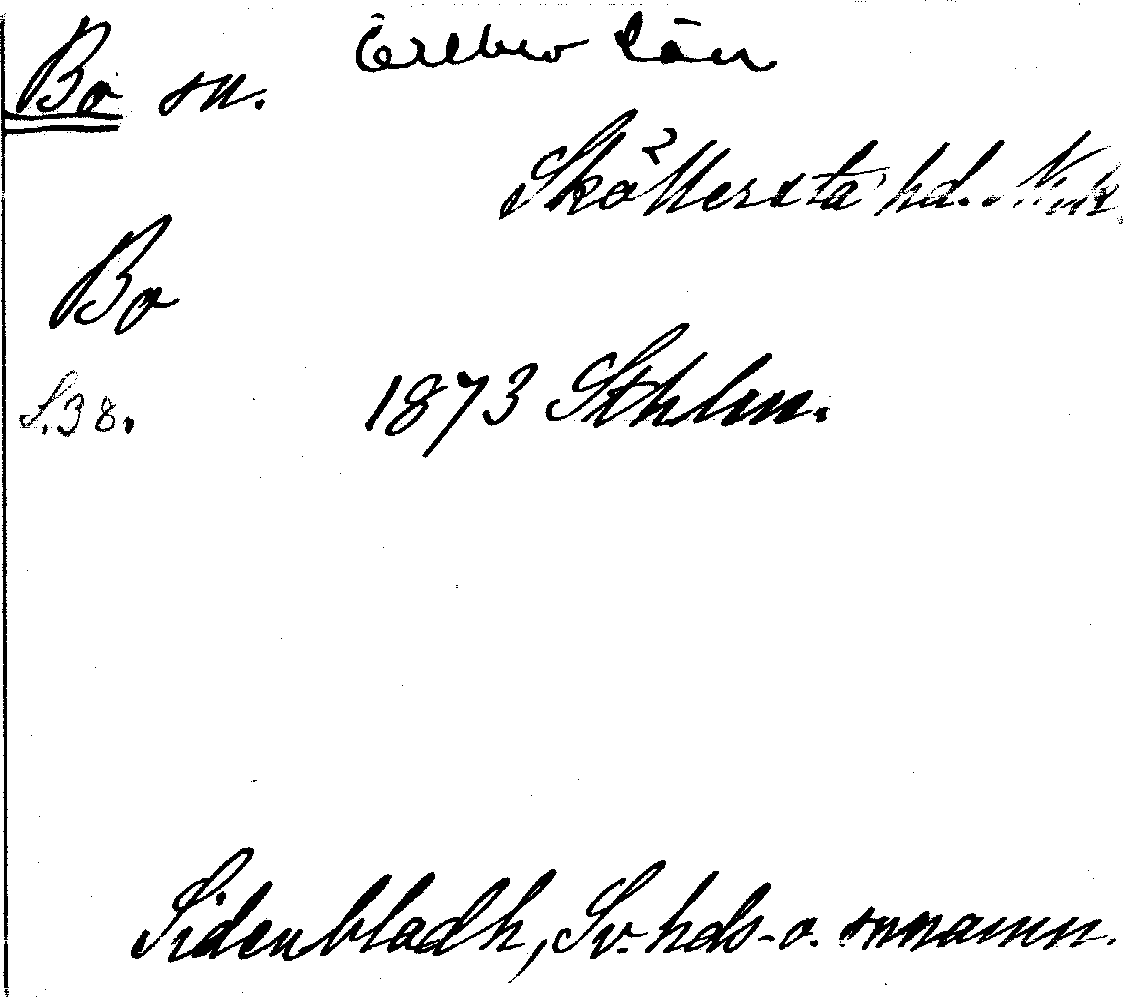 Bo sn. Örebro Län
Sköllersta hd.. Närk.
Bo
S.38. 1873 Sthlm.
Sidenbladh, Sv. hds- o. snnamn.